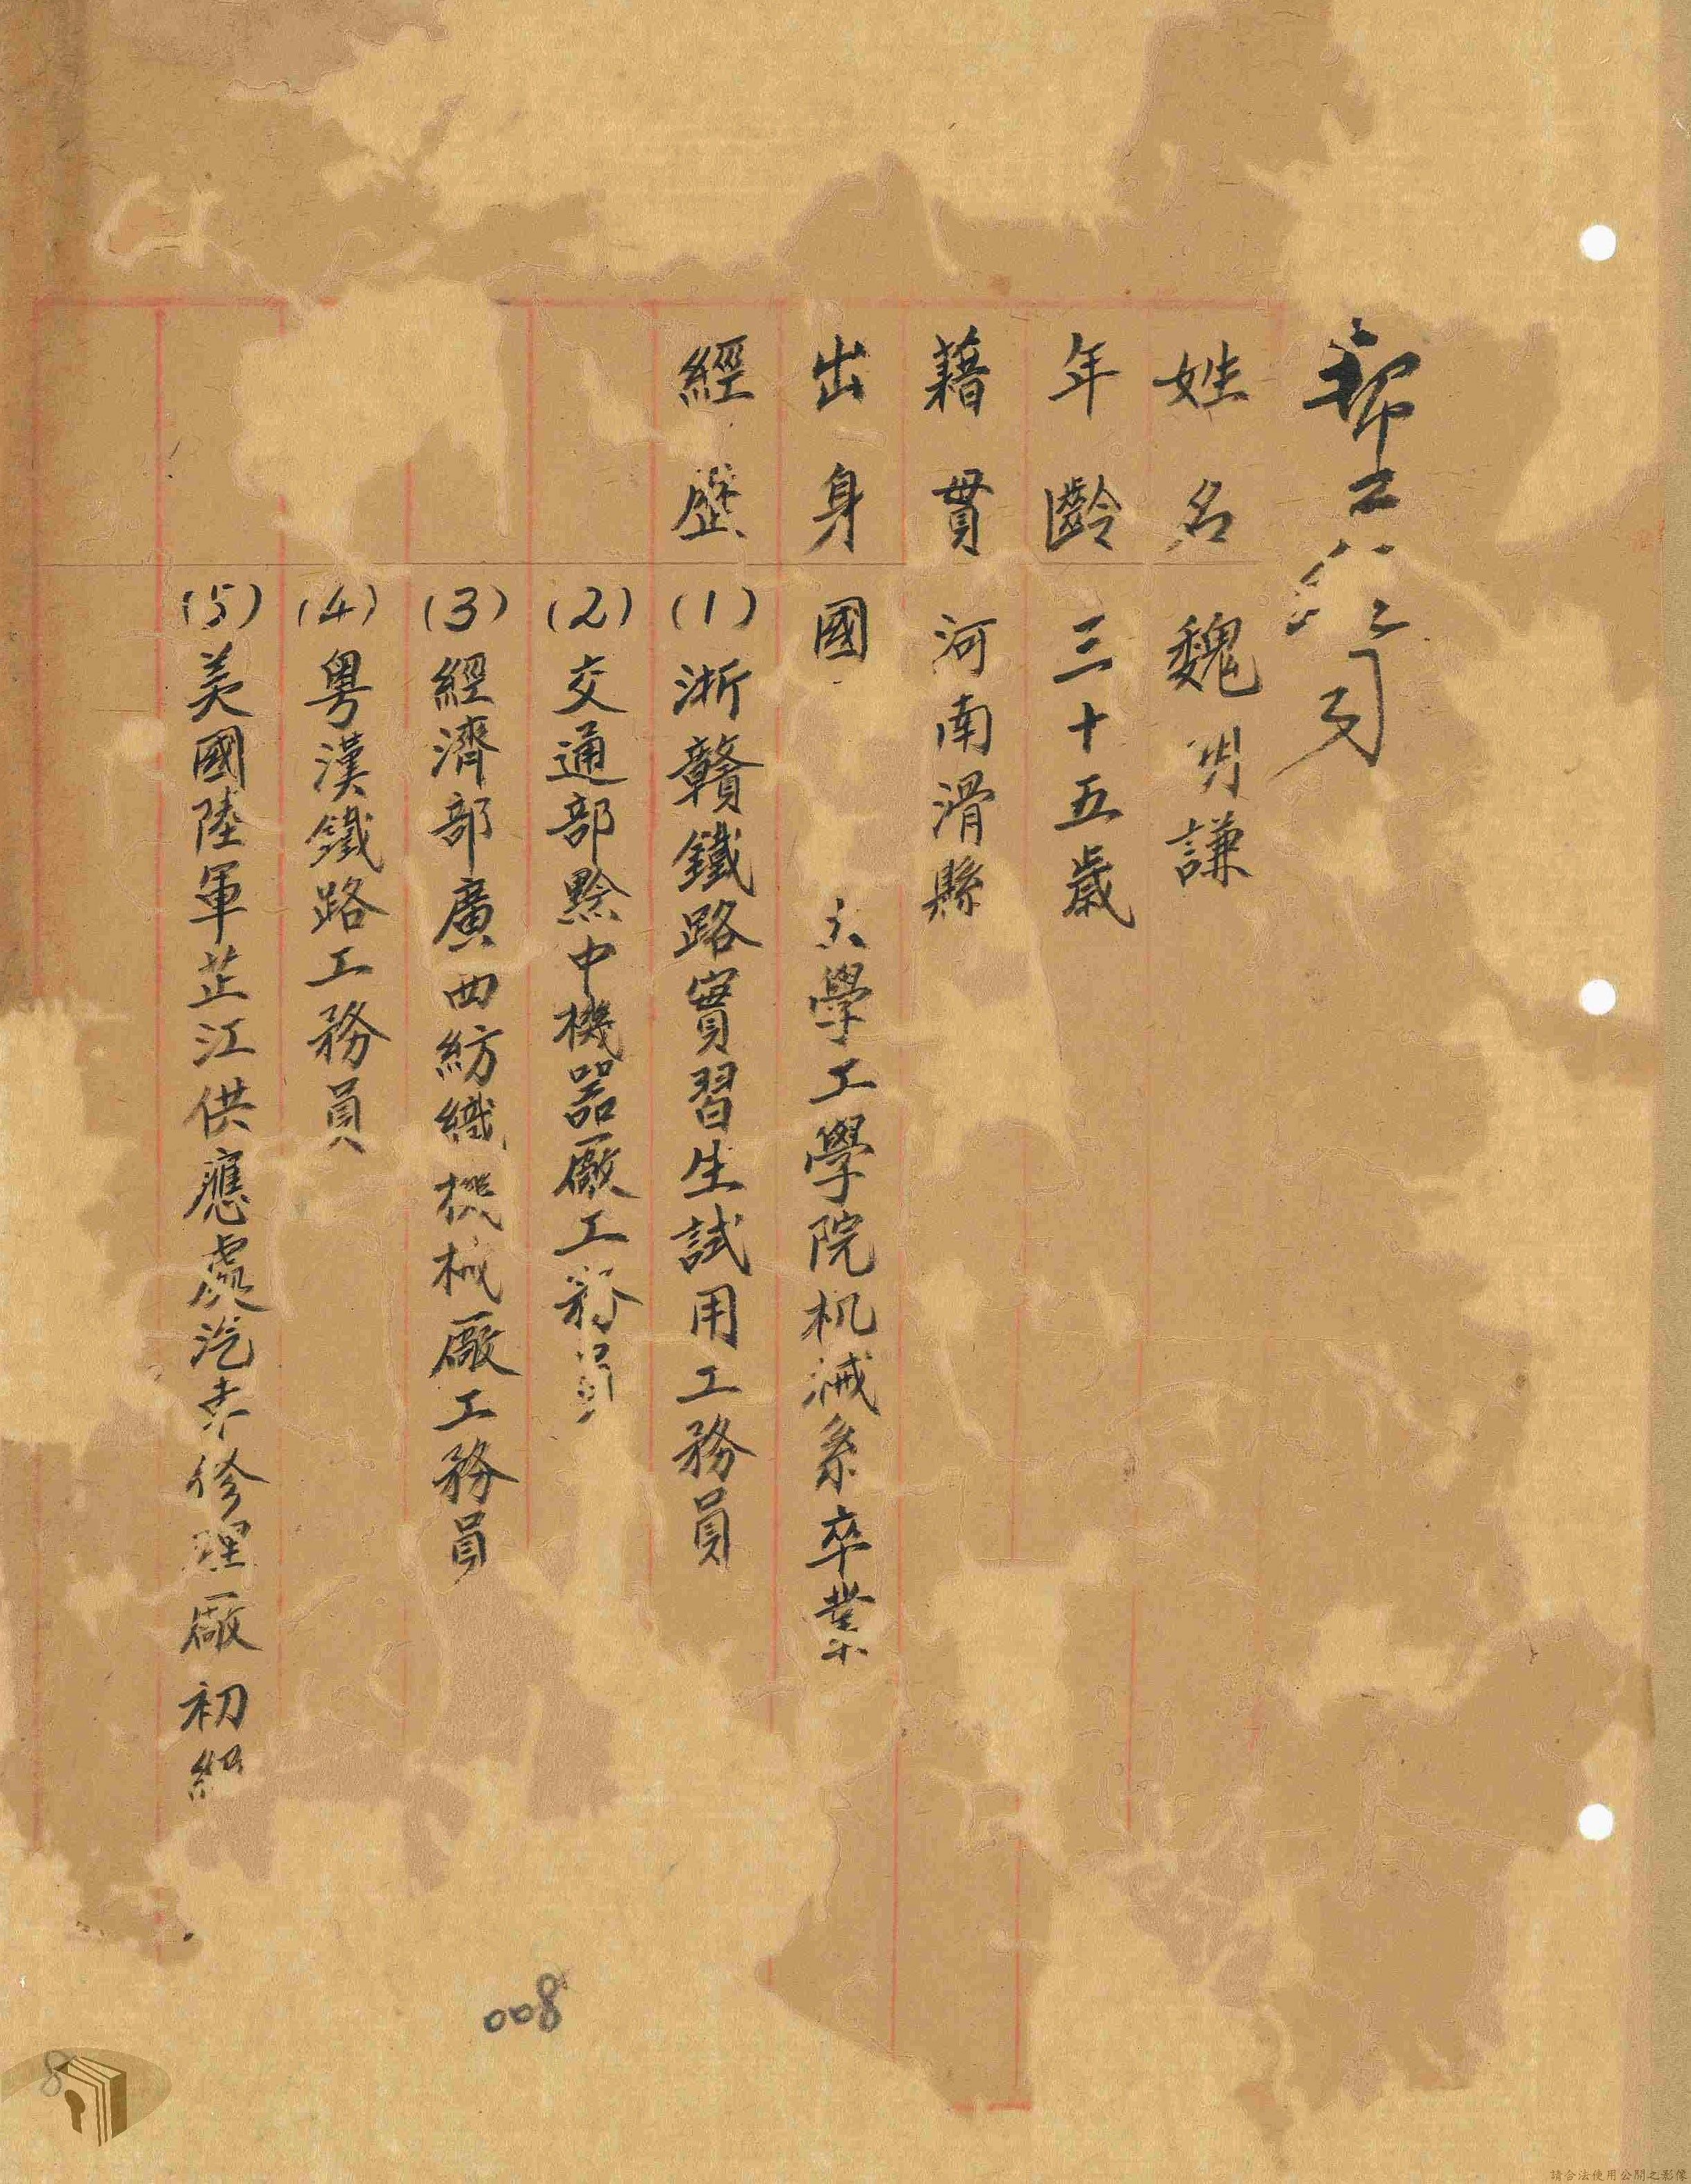 姓名 魏明謙
年齡 三十五歲
藉貫 河南滑縣
出身 國 大學工學院机械系卒業
經歷 (1)浙贛鐵路實習生試用工務員
(2)交通部黔中機器廠工務員
(3)經濟部廣西紡織機械廠工務員
(4)粵漢鐵路工務員
(5)美國陸軍芷江供應處汽車修理廠初級
008
8
請合法使用公開之影像